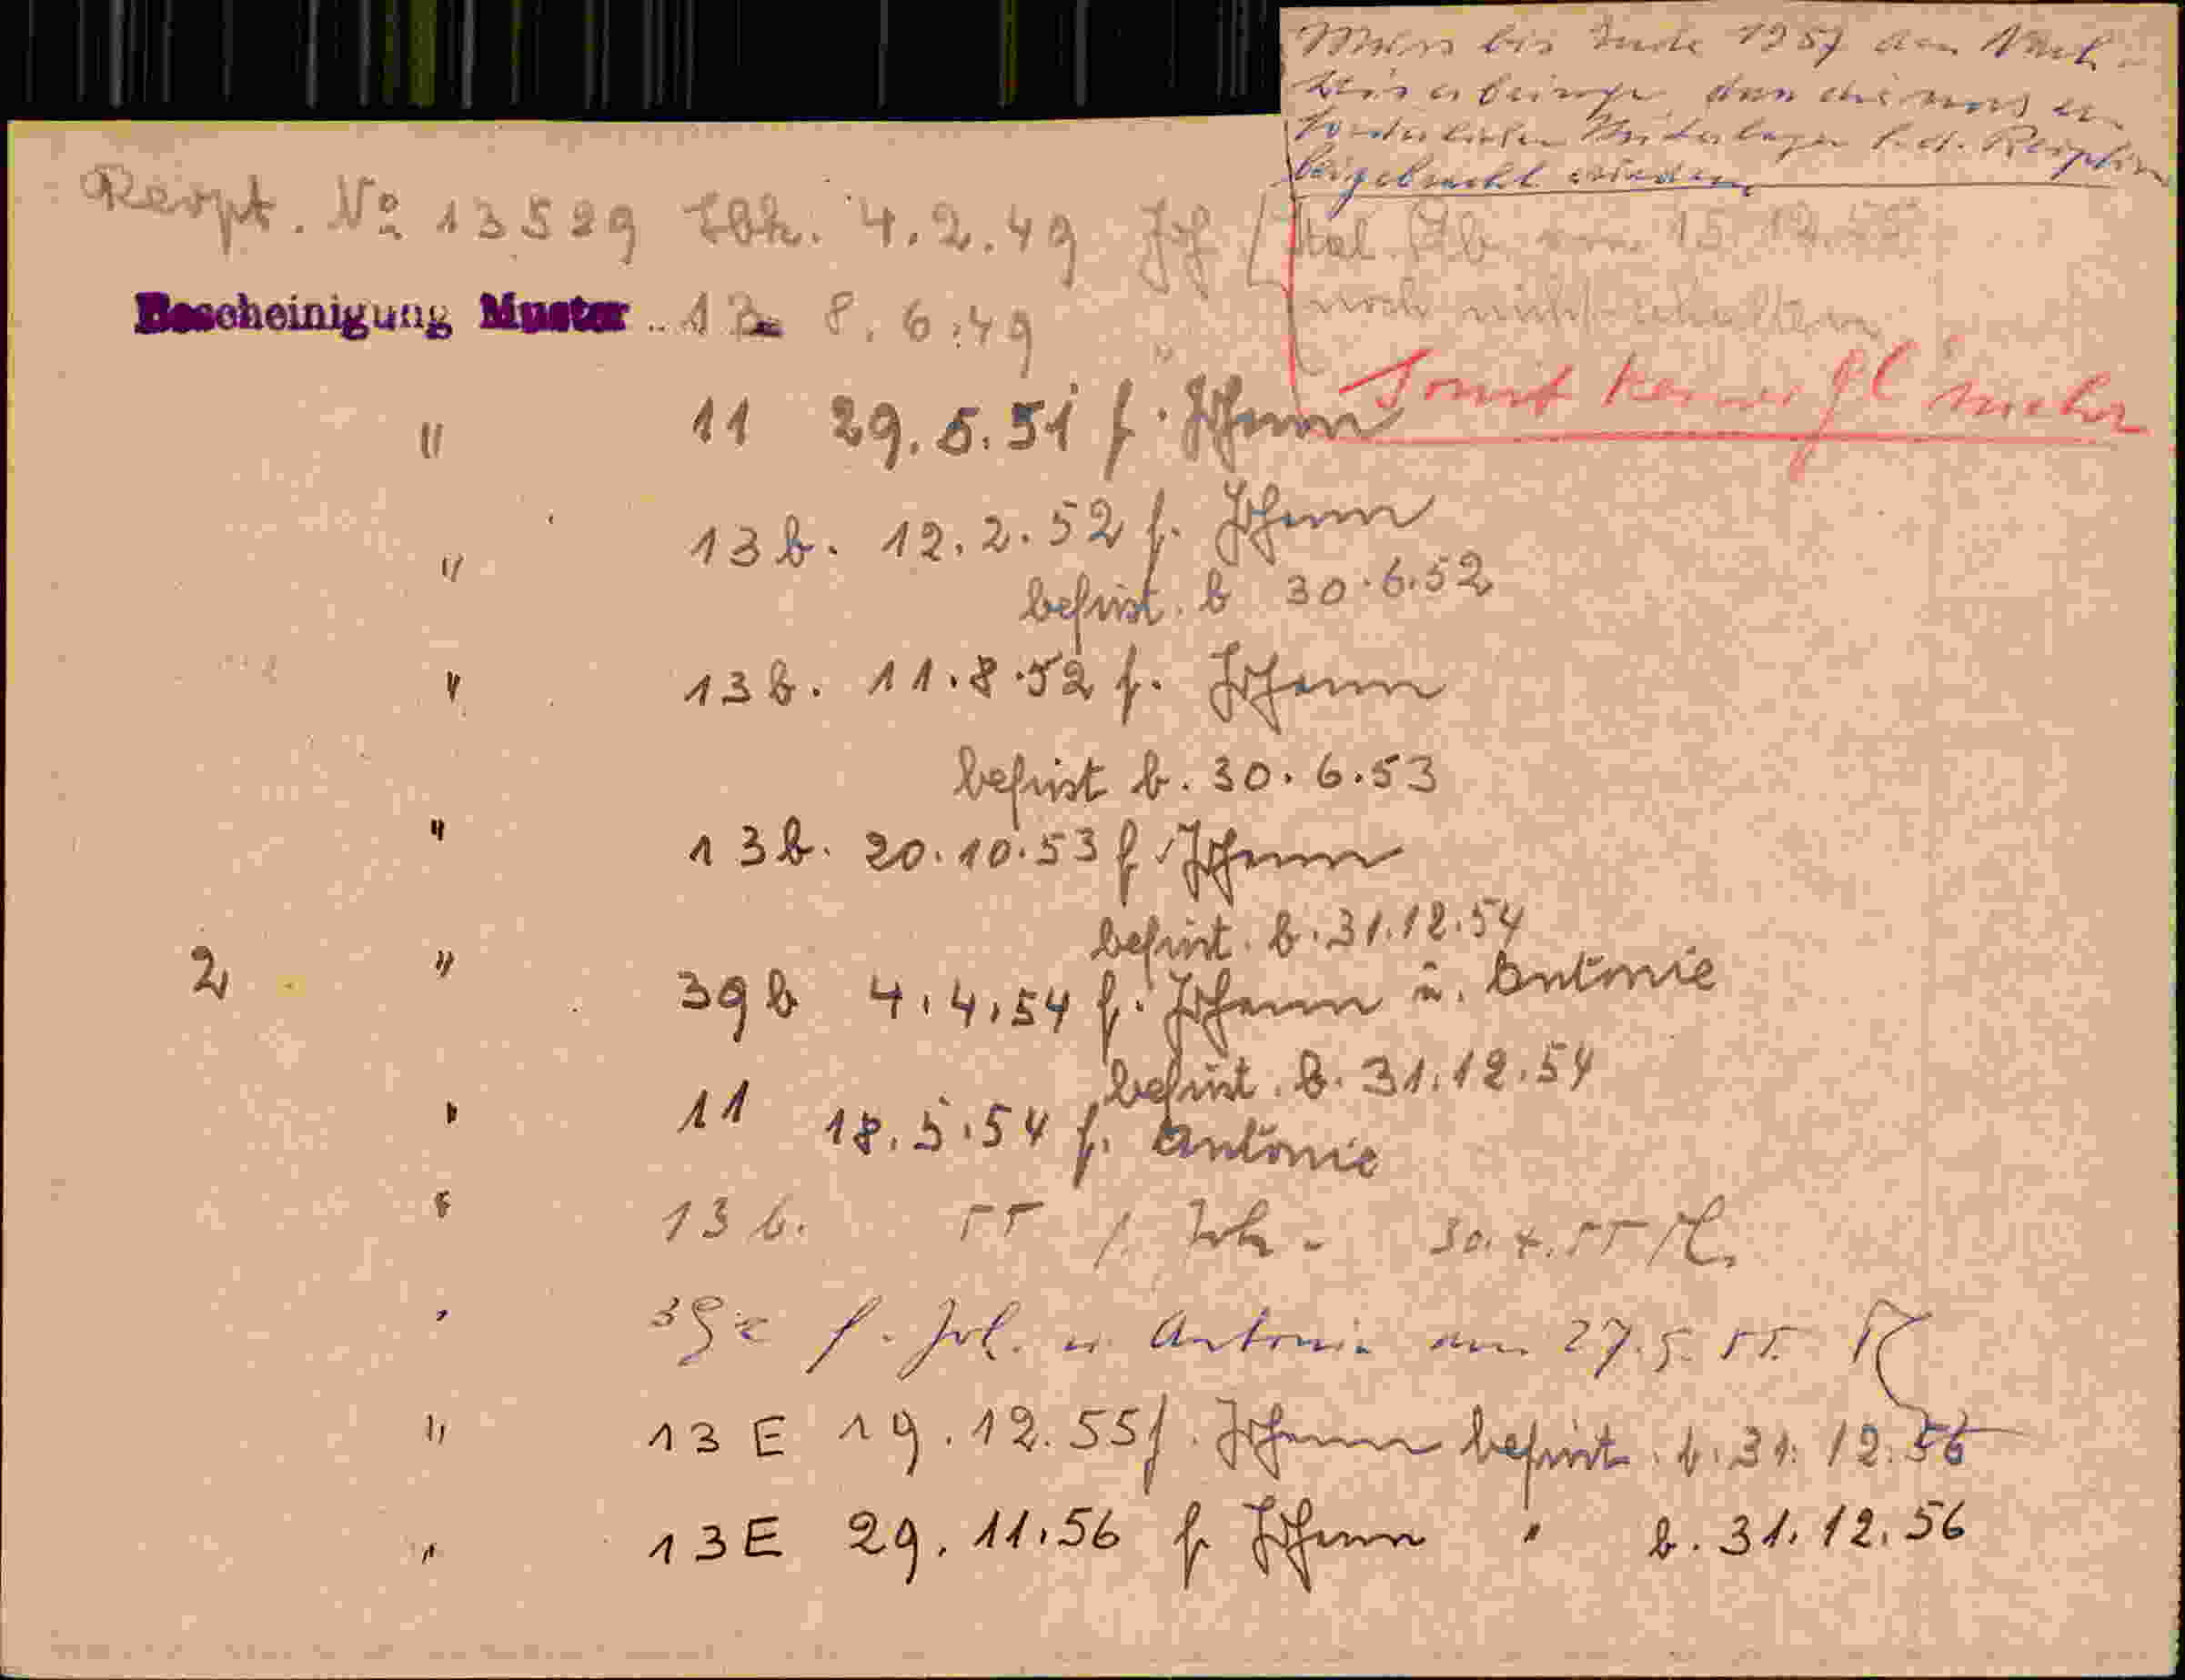 Muss bis Ende 1957 den Nach-
weis erbringen, dass die noch er-
forderlichen Unterlagen f. d. Reoption
beigebracht wurden
Reopt. No 13529 Ibk. 4.2.49
ital. Stb. vom 15.12.55
noch nicht erhalten
Bescheinigung Muster 13 8.6.49 "
Somit keine Gl mehr
" 11 29.5.51 f. Johann
" 13 b. 12.2.52 f. Johann
befrist. b 30.6.52
" 13 b. 11.8.52 f. Johann
befrist b. 30.6.53
" 13 b. 20.10.53 f. Johann
befrist. b. 31.12.54
2 " 39 b 4.4.54 f. Johann u. Antonie
befrist. b. 31.12.54
" 11 18.5.54 f. Antonie
" 13 b. 55 f. Joh. 30.4.55
" 39 f. Joh. u. Antonie am 27.5.55.
" 13 E 19.12.55 f. Johann befrist. b. 31.12.56
" 13 E 29.11.56 f Johann " b. 31.12.56